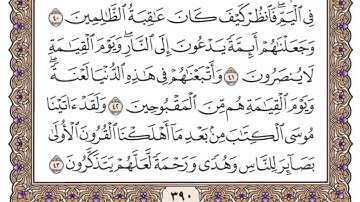 فِي ٱلۡيَمِّۖ فَٱنظُرۡ كَيۡفَ كَانَ عَٰقِبَةُ ٱلظَّٰلِمِينَ ٤٠
وَجَعَلۡنَٰهُمۡ أَئِمَّةٗ يَدۡعُونَ إِلَى ٱلنَّارِۖ وَيَوۡمَ ٱلۡقِيَٰمَةِ
لَا يُنصَرُونَ ٤١ وَأَتۡبَعۡنَٰهُمۡ فِي هَٰذِهِ ٱلدُّنۡيَا لَعۡنَةٗۖ
وَيَوۡمَ ٱلۡقِيَٰمَةِ هُم مِّنَ ٱلۡمَقۡبُوحِينَ ٤٢ وَلَقَدۡ ءَاتَيۡنَا
مُوسَى ٱلۡكِتَٰبَ مِنۢ بَعۡدِ مَآ أَهۡلَكۡنَا ٱلۡقُرُونَ ٱلۡأُولَىٰ
بَصَآئِرَ لِلنَّاسِ وَهُدٗى وَرَحۡمَةٗ لَّعَلَّهُمۡ يَتَذَكَّرُونَ ٤٣
٣٩٠